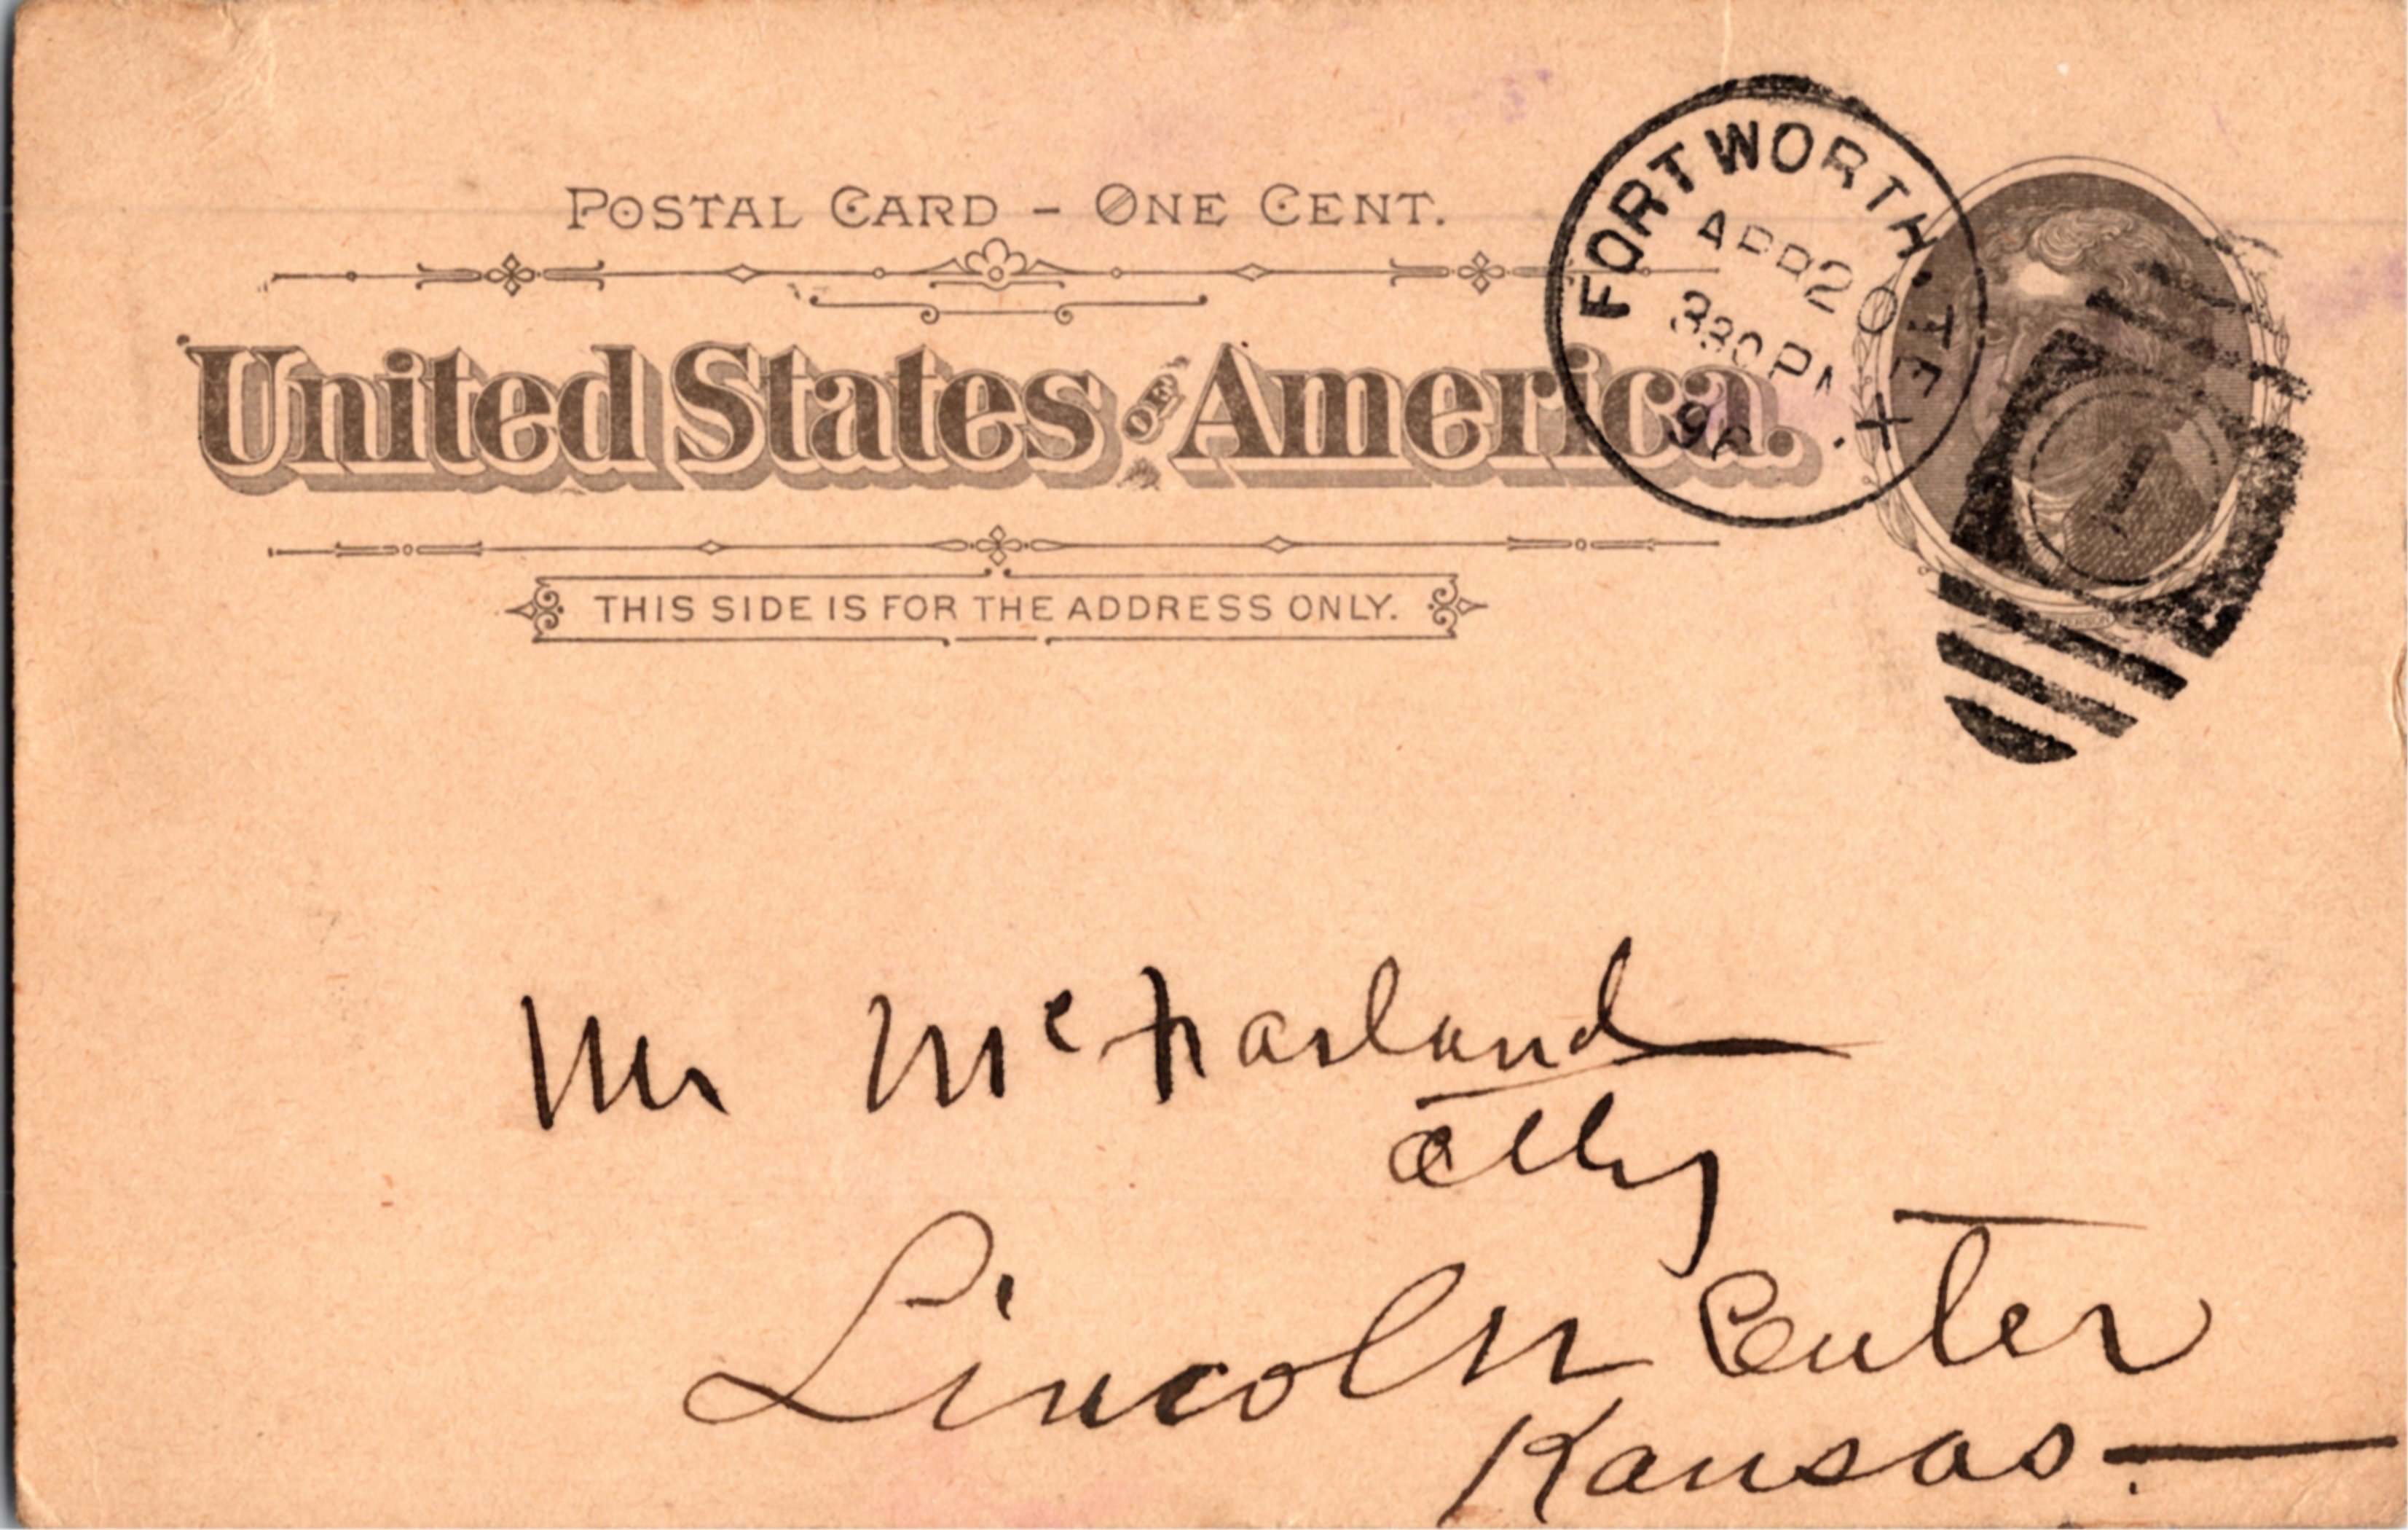 POSTAL CARD - ONE CENT.
United States OF America.
THIS SIDE IS FOR THE ADDRESS ONLY.
FORT WORTH, TEX.
APR 20
330 PM
1
Mr McFarland
atty
Lincoln Center
Kansas